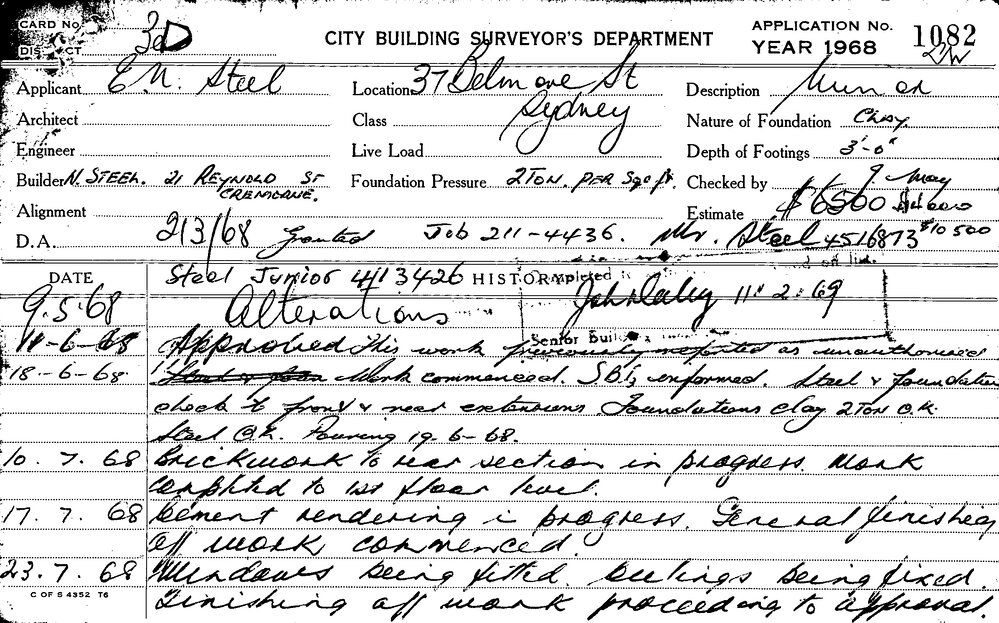 CARD No. 3D
DISTRICT
CITY BUILDING SURVEYOR'S DEPARTMENT
APPLICATION No. 1082
YEAR 1968
Applicant E.N. Steel
Location 37 Belmore St
Sydney
Description
Architect
Class
Nature of Foundation Clay
Engineer
Live Load
Depth of Footings 3'-0"
Builder N. STEEL. 21 REYNOLD ST
CREMORNE.
Foundation Pressure 2 TON. PER SQ. ft.
Checked by 9. May
Alignment
Estimate $6500
$10 500
D.A. 2/3/68 Granted Job 211-4436. Mr. Steel 4516873
DATE
Steel Junior 4113426 HISTORY
Completed
9.5.68 Alterations
John Daley 11.2.69
Senior Buil
11-6-68 Approved this work previously reported as unauthorised
18-6-68 Work commenced. S.B.I. informed. Steel & foundation
check to front & rear extensions Foundations clay 2 TON O.K.
Steel O.K. Pouring 19-6-68.
10. 7. 68 Brickwork to rear section in progress. Work
complited to 1st floor level.
17. 7. 68 Cement rendering in progress. General finishing
off work commenced.
23. 7. 68 Windows being fitted. Ceilings being fixed.
C OF S 4352 T6
Finishing off work proceeding to approval.